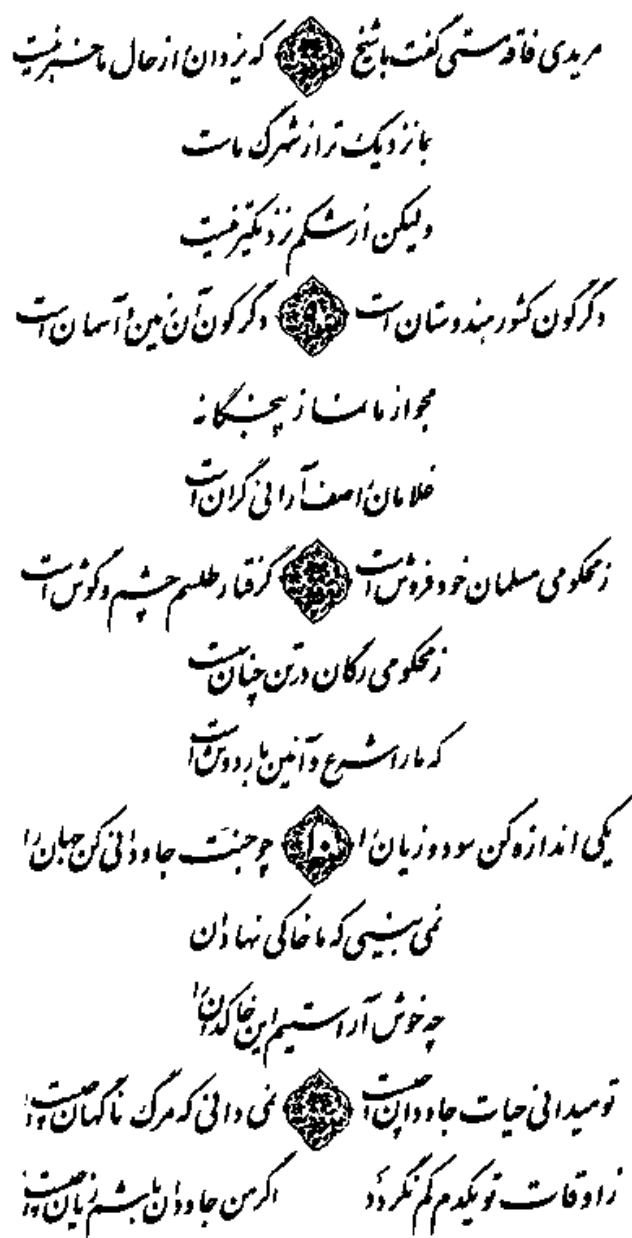 مریدی فاقه مستی گفت با شیخ که یزدان را ز حال ما خبر نیست
بما نزدیک تر از شهرگ ماست
ولیکن از شکم نزدیکتر نیست
دگرگون کشور هندوستان است ۹ دگرگون آن زمین و آسمان است
مجو از ما نماز پنجگانه
غلامان را صف آرائی گران است
ز محکومی مسلمان خود فروش است گرفتار طلسم چشم و گوش است
ز محکومی رگان در تن چنان سست
که ما را شرع و آئین بار دوش است
یکی اندازه کن سود و زیان را ۱۰ چو جنت جاودانی کن جهان را
نمی بینی که ما خاکی نهادان
چه خوش آراستیم این خاکدان را
تو میدانی حیات جاودان چیست نمی دانی که مرگ ناگهان چیست
ز اوقات تو یکدم کم نگردد اگر من جاودان باشم زیان چیست